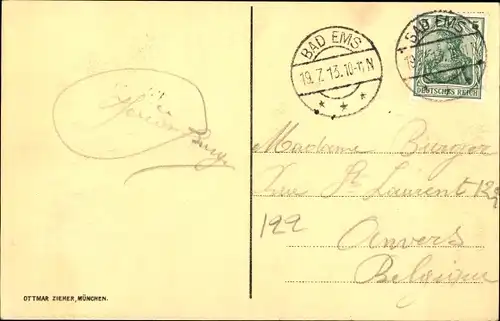 BAD EMS
19.7.13.10-11N
* * *
BAD EMS
5
DEUTSCHES REICH
Madame Bürger
Rue St Laurent 129
122
Anvers
Belgique
OTTMAR ZIEHER, MÜNCHEN.